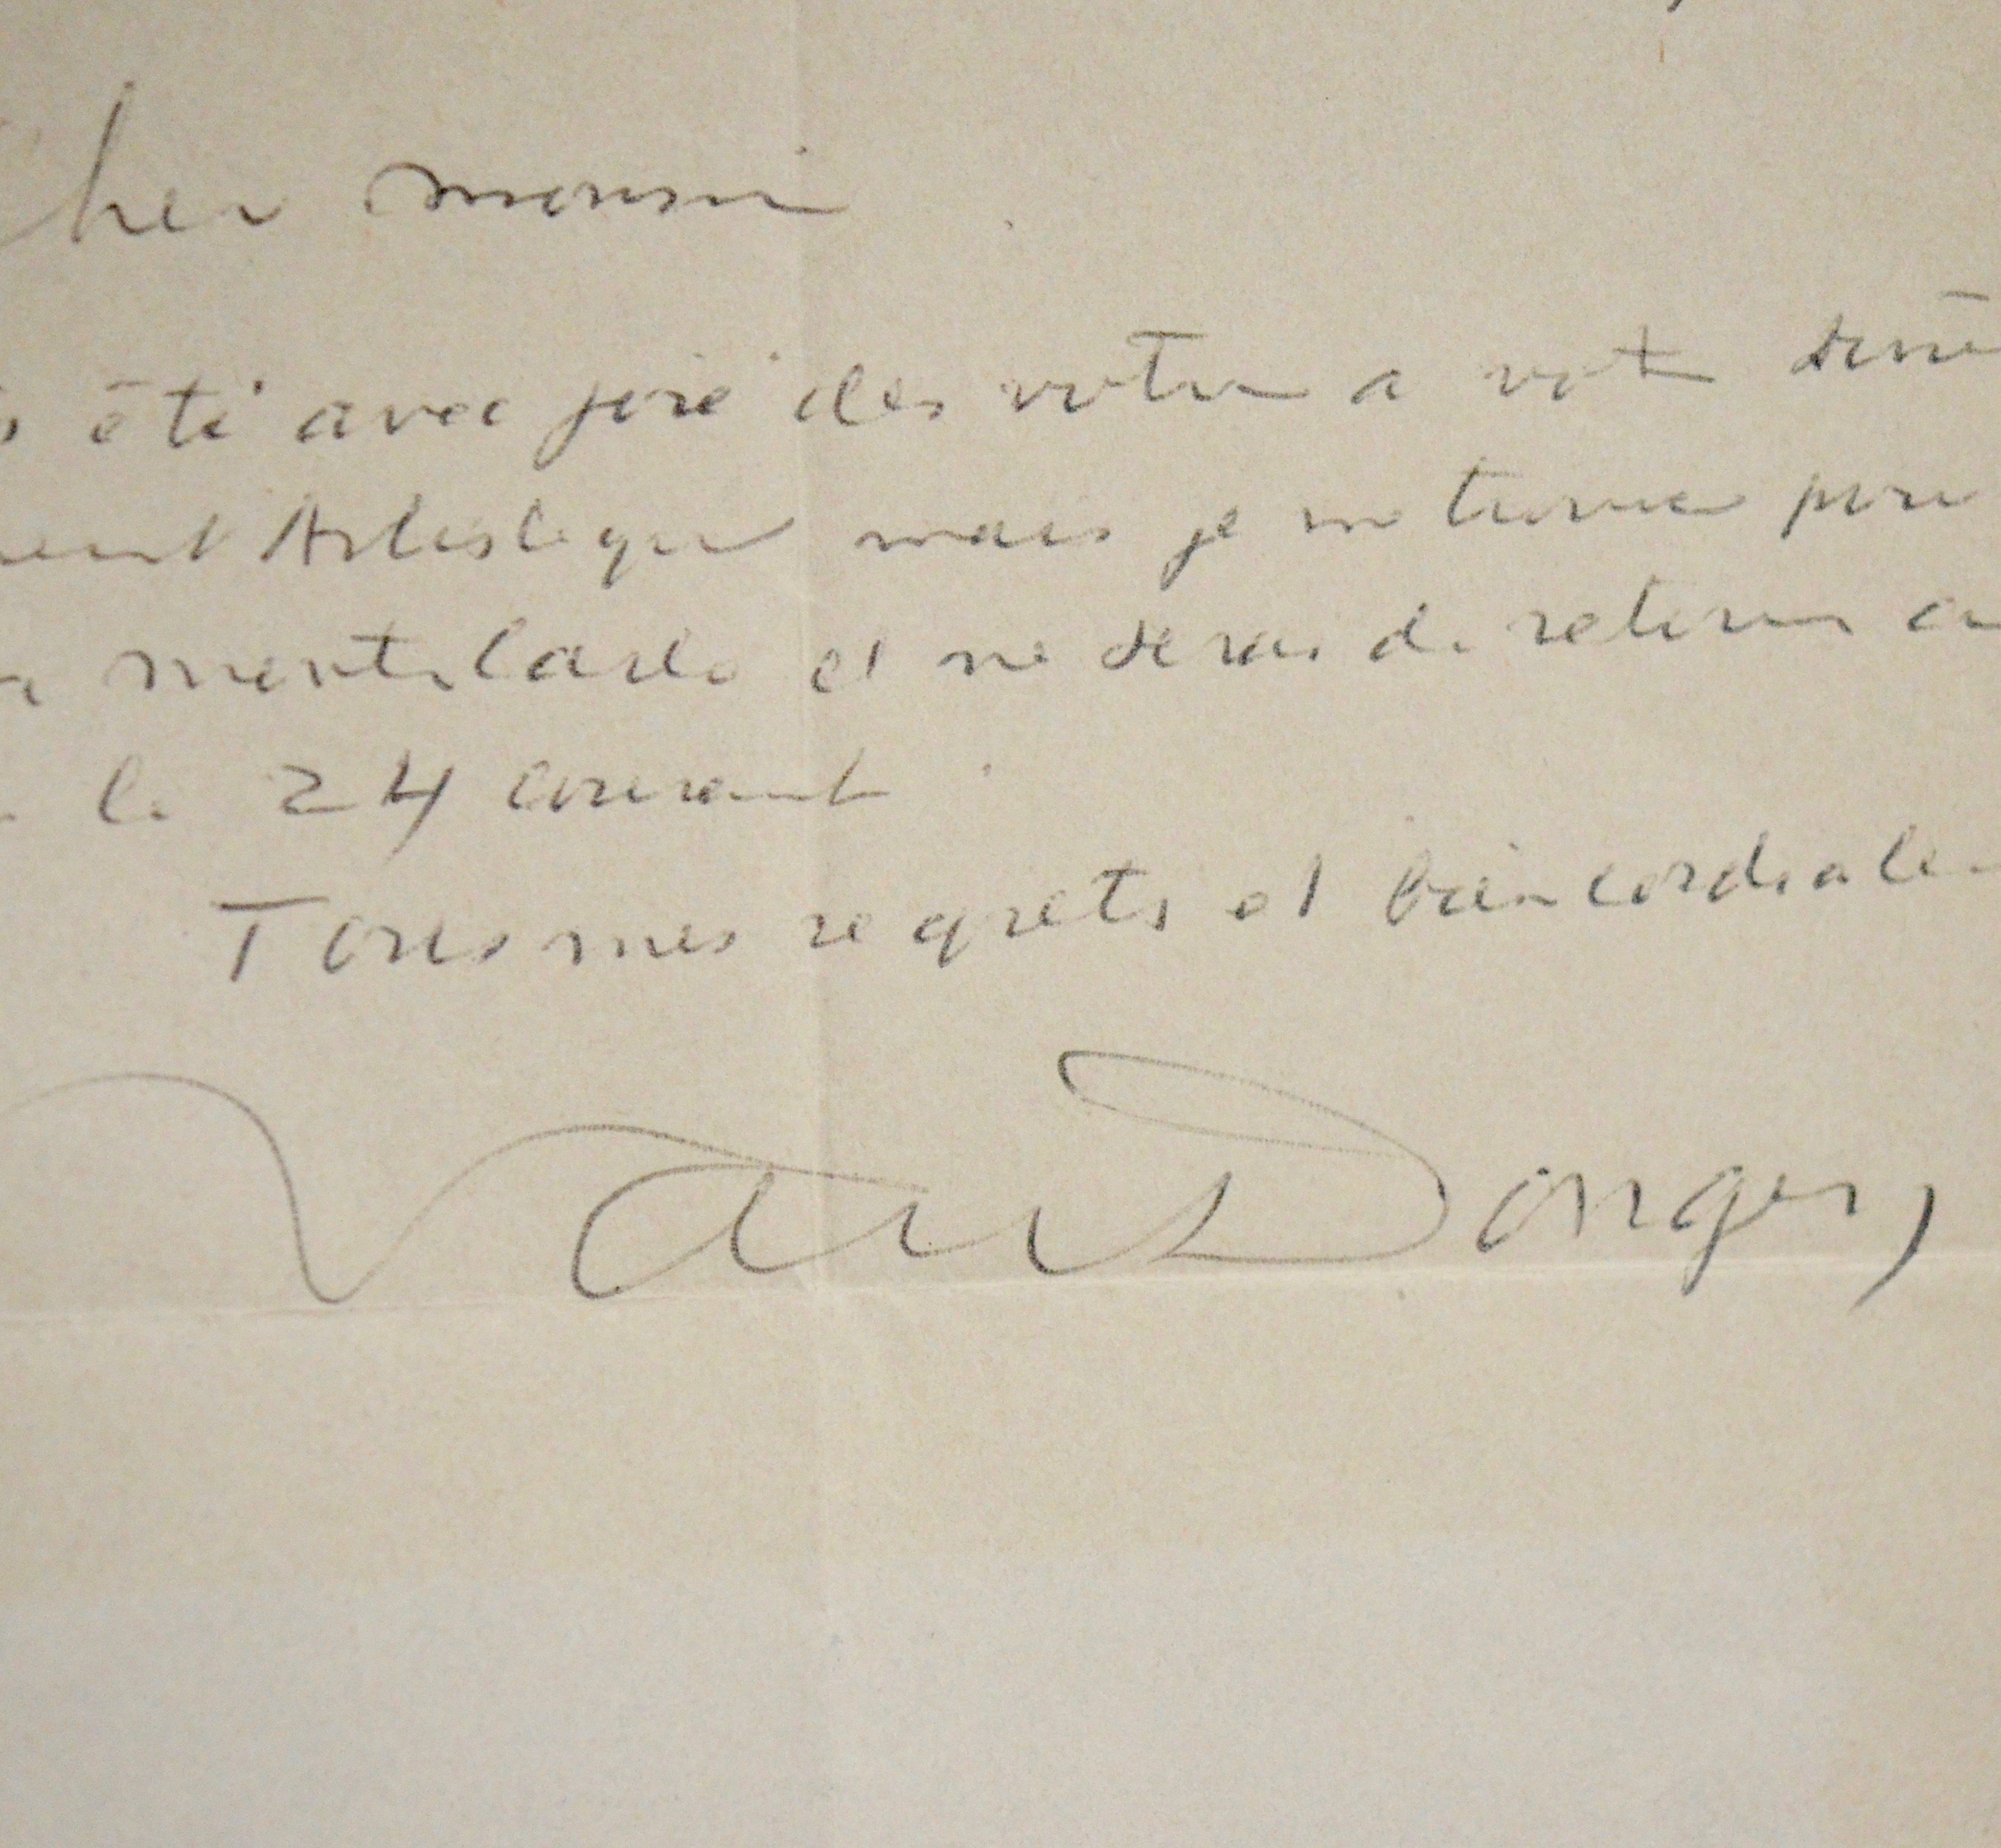 cher monsieur
été avec joie des votre a votre dîne
ment Artistique mais je me trouve pour
a montecarlo et ne serai de retour au
le 24 courant
Tous mes regrets et bien cordiale
van Dongen,